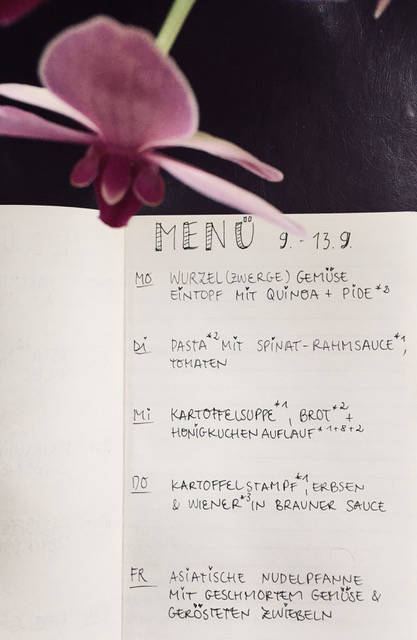 MENÜ 9. - 13.9.
MO WURZEL(ZWERGE) GEMÜSE
EINTOPF MIT QUINOA + PIDE*8
DI PASTA*2 MIT SPINAT-RAHMSAUCE*1,
TOMATEN
MI KARTOFFELSUPPE*1, BROT*2 +
HONIGKUCHENAUFLAUF*1+8+2
DO KARTOFFELSTAMPF*1, ERBSEN
& WIENER*3 IN BRAUNER SAUCE
FR ASIATISCHE NUDELPFANNE
MIT GESCHMORTEM GEMÜSE &
GERÖSTETEN ZWIEBELN